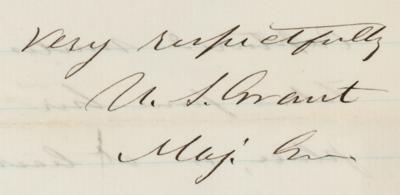 Very respectfully
U. S. Grant
Maj. Gn.